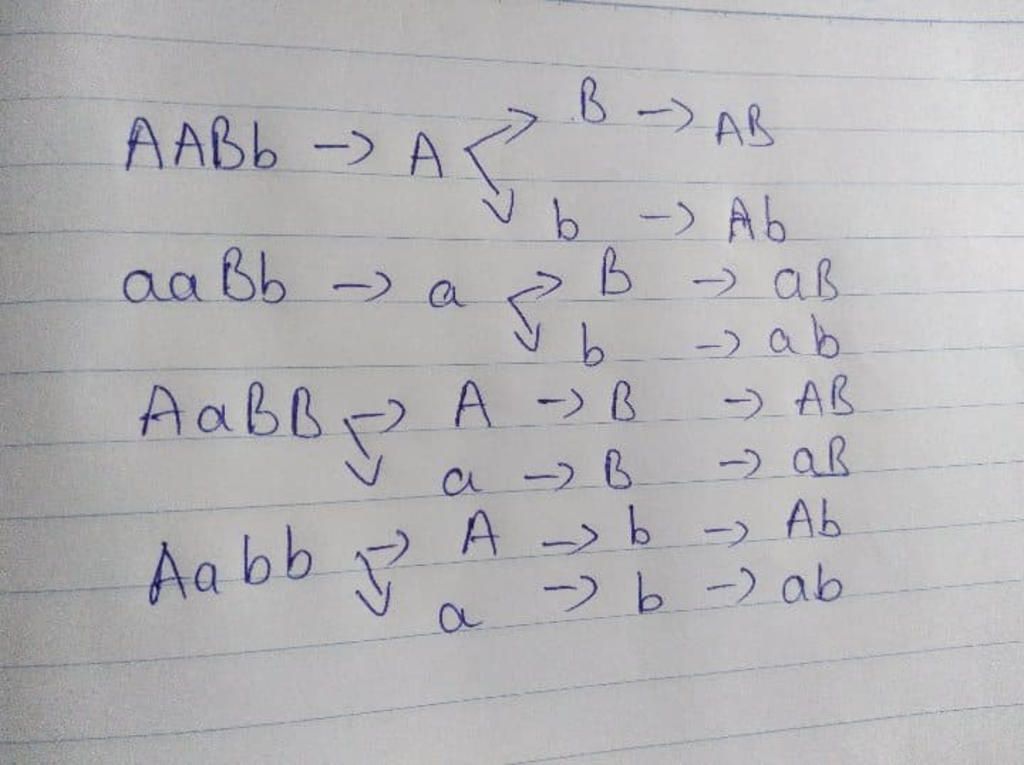 AABb → A → B → AB
b → Ab
aaBb → a → B → aB
b → ab
AaBB → A → B → AB
a → B → aB
Aabb → A → b → Ab
a → b → ab